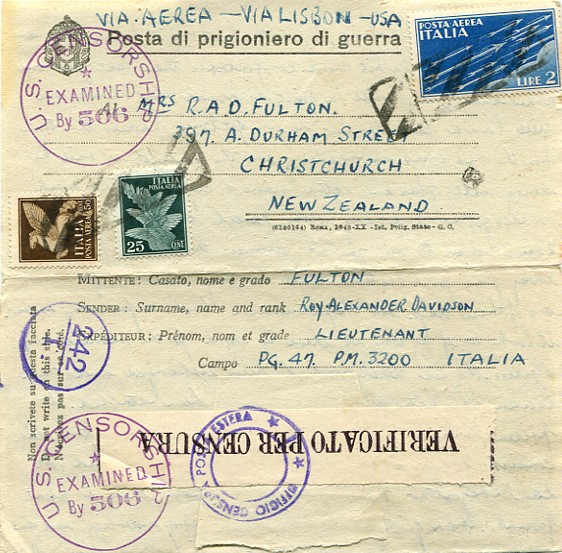 VIA. AEREA — VIA LISBON — USA
Posta di prigioniero di guerra
POSTA AEREA
ITALIA
LIRE 2
U.S. CENSORSHIP
EXAMINED
By 506
MRS R.A.D. FULTON.
397. A. DURHAM STREET
CHRISTCHURCH
NEW ZEALAND
ITALIA
POSTA AEREA
50
ITALIA
POSTA AEREA
25 CENT
(6120164) Roma, 1942-XX - Ist. Polig. Stato - G. C.
MITTENTE: Casato, nome e grado FULTON
SENDER: Surname, name and rank Roy ALEXANDER DAVIDSON
EXPÉDITEUR: Prénom, nom et grade LIEUTENANT
Campo PG. 47 P.M. 3200 ITALIA
Non scrivete su questa facciata
Do not write on this side.
N'écrivez pas sur ce côté.
242
VERIFICATO PER CENSURA
UFFICIO CENSURA POSTA ESTERA
U.S. CENSORSHIP
EXAMINED
By 506